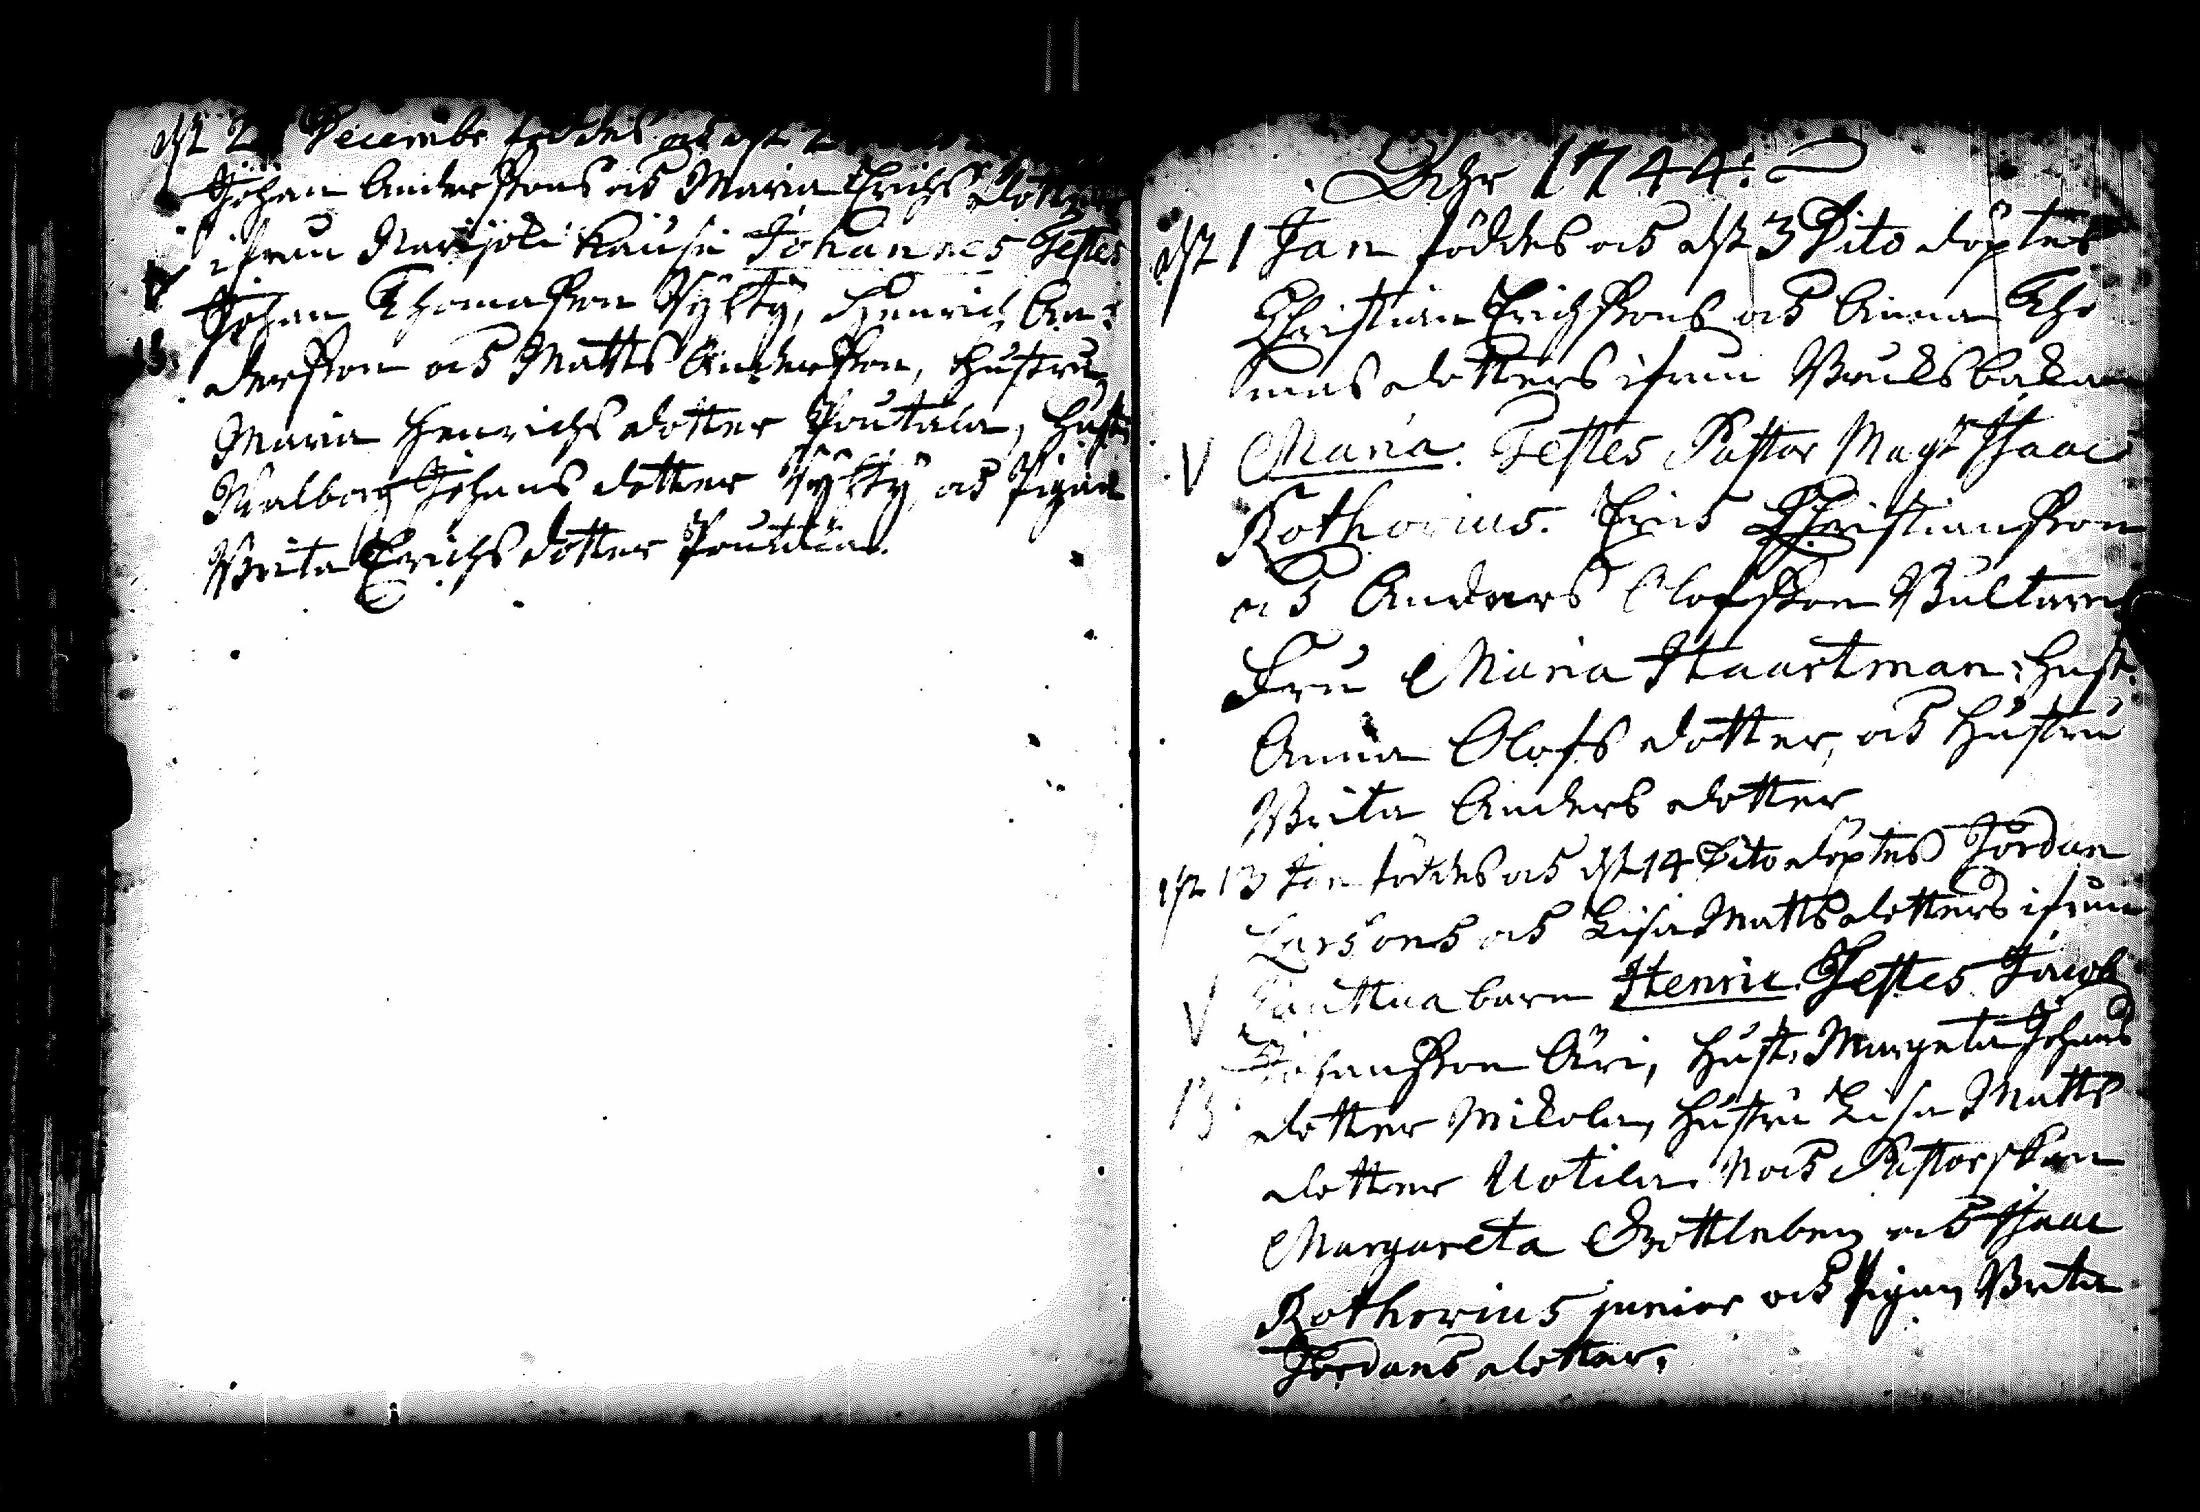 dht 2 Decembr föddes och dht
Johan Anderssons och Maria Erichs dotters
ifrån Marisoli Hausu Johannes Testes
Johan Thomasson Sÿltÿ, Henrich An:
dersson och Matts Andersson, hustru
Maria Henrichs dotter Poutala, Hust:
Walborg Johans dotter Sÿltÿ och Pigan
Brita Erichs dotter Poutala.
Åhr 1744:
dht 1 Jan föddes och dht 3 Dito döptes
Christian Erichssons och Anna Tho
mas dotters ifrån Bruksbakan
V Maria. Testes Pastor Magr Isaac
Rothovius. Eric Christiansson
och Anders Olofsson Bultare
Fru Maria Haartman: Hust:
Anna Olofs dotter, och Hustru
Brita Anders dotter
dht 13 Jan föddes och dht 14 Dito döptes Jordan
Larsons och Lisa Matts dotters ifrån
V Kauttua barn Henric. Testes Jacob
Johansson Äri, Hust: Margeta Johans
13 dotter Mikola, Hustru Lisa Matts
dotter Uotila. och Pastorskan
Margareta Gottleben och Isaac
Rothovius junior och Pigan Brita
Jordans dotter.